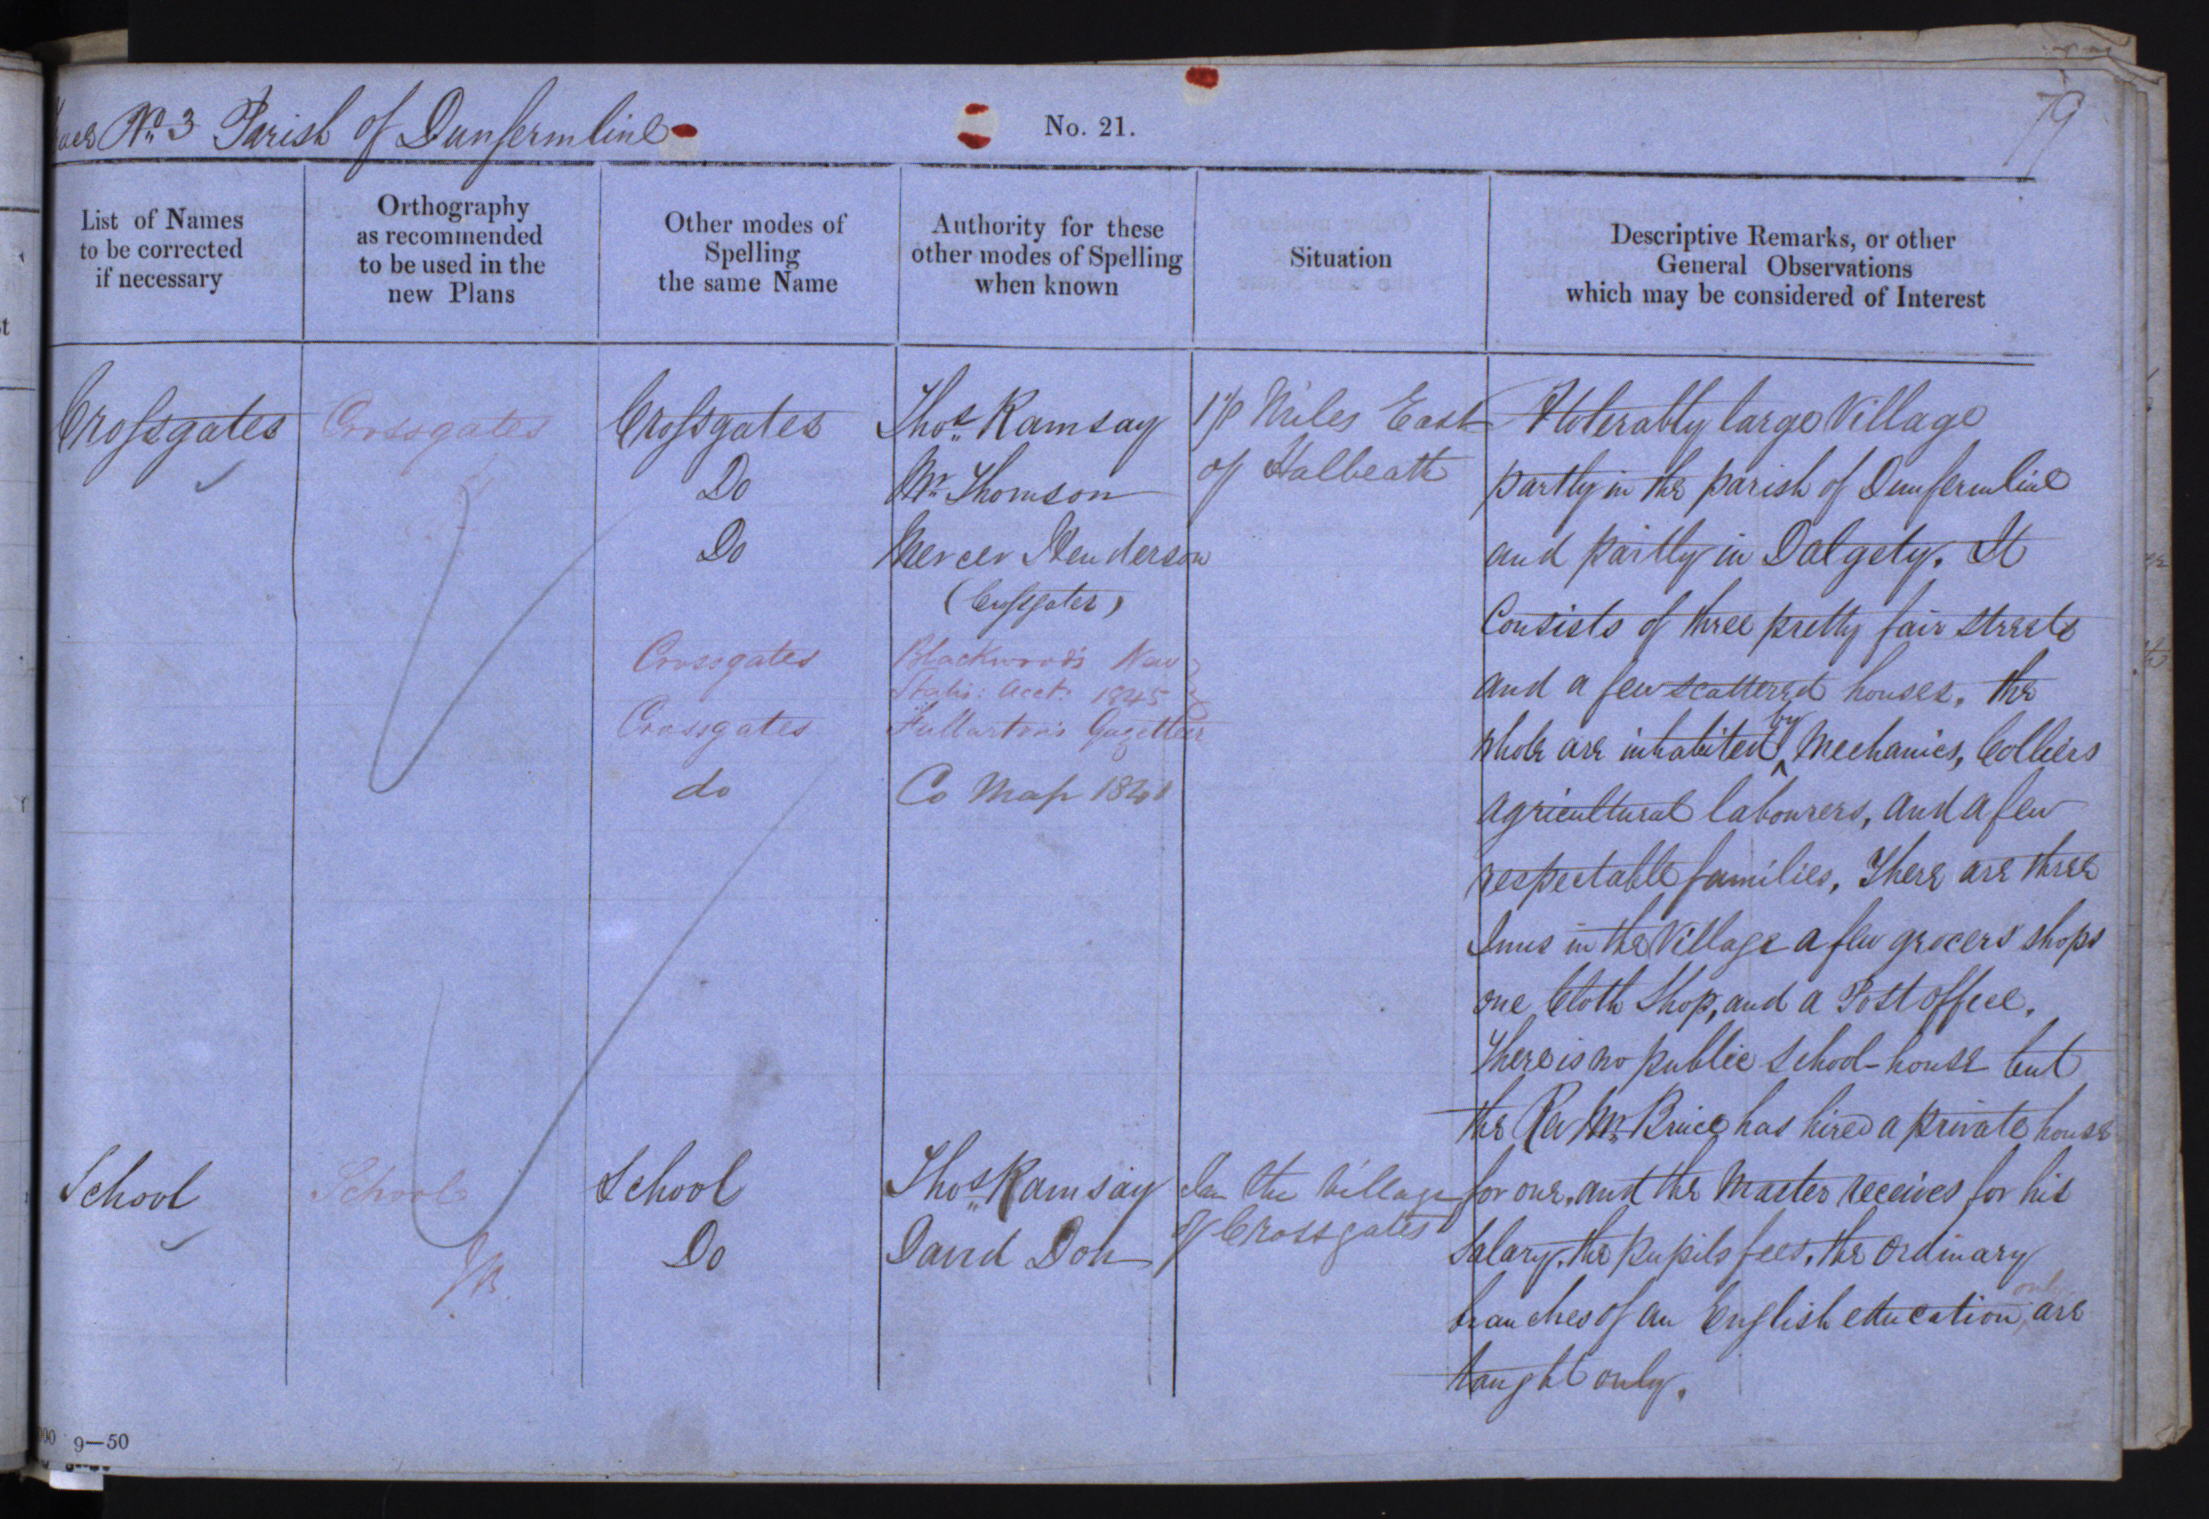 No 3 Parish of Dunfermline
No. 21.
79
List of Names
to be corrected
if necessary
Orthography
as recommended
to be used in the
new Plans
Other modes of
Spelling
the same Name
Authority for these
other modes of Spelling
when known
Situation
Descriptive Remarks, or other
General Observations
which may be considered of Interest
Crossgates
Crossgates
Crossgates
Do
Do
Crossgates
Crossgates
do
Thos. Ramsay
Mr. Thomson
Mercer Henderson
(Crossgates)
Blackwood's New
Statis: Acct. 1845
Fullarton's Gazetteer
Co Map
Miles East
of Halbeath
A tolerably large Village
partly in the parish of Dunfermline
and partly in Dalgety. It
Consists of three pretty fair streets
and a few scattered houses. the
whole are inhabited by Mechanics, Colliers
agricultural labourers, and a few
respectable families. There are three
Inns in the Village a few grocers' shops
one Cloth Shop, and a Post office.
There is no public school-house but
the Rev Mr. Bruce has hired a private house
for one, and the Master receives for his
Salary, the pupils fees. the ordinary
branches of an English education only are
taught only.
School
School
School
Do
Thos. Ramsay
David Don
In the Village
of Crossgates
9—50